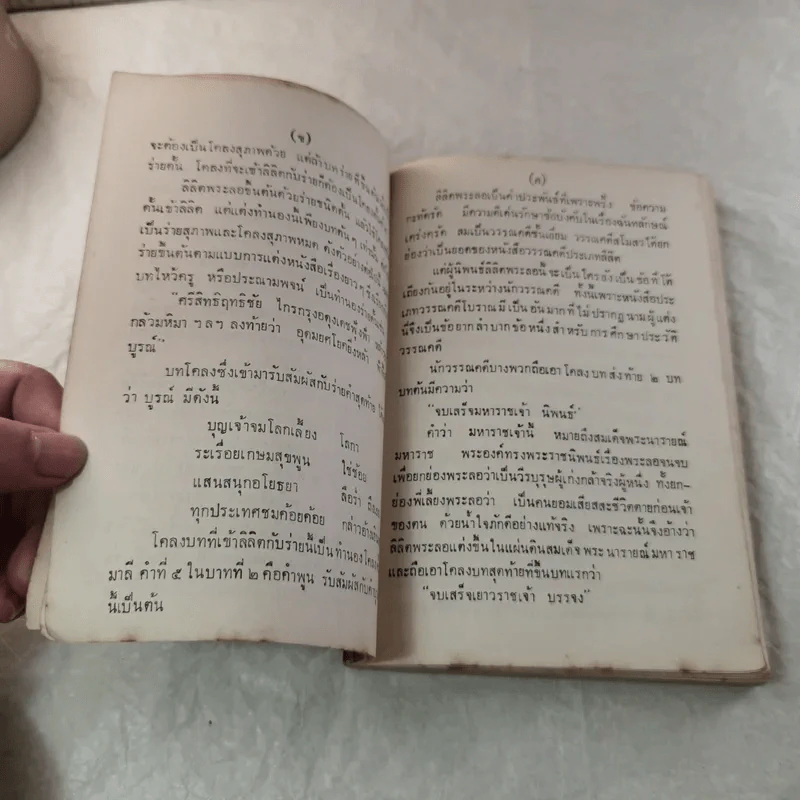 (ข)
จะต้องเป็นโคลงสุภาพด้วย แต่ถ้าบทร่ายดีขึ้นต้น
ร่ายดั้น โคลงที่จะเข้าลิลิตกับร่ายก็ต้องเป็นโคลงดั้น
ลิลิตพระลอขึ้นต้นด้วยร่ายชนิดดั้น แล้วใช้
ดั้นเข้าลิลิต แต่แต่งทำนองนี้เพียงบทต้น ๆ เท่านั้น
เป็นร่ายสุภาพและโคลงสุภาพหมด ดังตัวอย่าง
ร่ายขึ้นต้นตามแบบการแต่งหนังสือเรื่องยาว ๆ
บทไหว้ครู หรือประณามพจน์ เป็นทำนองร่าย
"ศรีสิทธิฤทธิชัย ไกรกรุงอดุงเดชฟุ้งฟ้า
กลัวมหิมา ฯลฯ ลงท้ายว่า อุดมยศโยคยิ่งหล้า
บูรณ์"
บทโคลงซึ่งเข้ามารับสัมผัสกับร่ายคำสุดท้าย
ว่า บูรณ์ มีดังนี้
บุญเจ้าจมโลกเลี้ยง โลกา
ระเรื่อยเกษมสุขพูน ใช่ช้อย
แสนสนุกอโยธยา ลือร่ำ
ทุกประเทศชมค้อยค้อย กล่าวอ้าง
โคลงบทที่เข้าลิลิตกับร่ายนี้เป็นทำนอง
มาลี คำที่ ๕ ในบาทที่ ๒ คือคำพูน รับสัมผัสกับคำ
นี้เป็นต้น
(ค)
ลิลิตพระลอเป็นคำประพันธ์ที่เพราะพริ้ง ข้อความ
กะทัดรัด มีความดีเด่นรักษาข้อบังคับในเรื่องฉันทลักษณ์
เคร่งครัด สมเป็นวรรณคดีชั้นเยี่ยม วรรณคดีสโมสรได้ยก
ย่องว่าเป็นยอดของหนังสือวรรณคดีประเภทลิลิต
แต่ผู้นิพนธ์ลิลิตพระลอนั้น จะเป็นใครยังเป็นข้อที่โต้
เถียงกันอยู่ในระหว่างนักวรรณคดี ทั้งนี้เพราะหนังสือประ
เภทวรรณคดีโบราณมีเป็นอันมากที่ไม่ปรากฏนามผู้แต่ง
นี่จึงเป็นข้อยากลำบากข้อหนึ่งสำหรับการศึกษาประวัติ
วรรณคดี
นักวรรณคดีบางพวกถือเอาโคลงบทส่งท้าย ๒ บท
บทต้นมีความว่า
"จบเสร็จมหาราชเจ้า นิพนธ์"
คำว่า มหาราชเจ้านี้ หมายถึงสมเด็จพระนารายณ์
มหาราช พระองค์ทรงพระราชนิพนธ์เรื่องพระลอจนจบ
เพื่อยกย่องพระลอว่าเป็นวีรบุรุษผู้เก่งกล้าจริงผู้หนึ่ง ทั้งยก-
ย่องพี่เลี้ยงพระลอว่า เป็นคนยอมเสียสละชีวิตตายก่อนเจ้า
ของตน ด้วยน้ำใจภักดีอย่างแท้จริง เพราะฉะนั้นจึงอ้างว่า
ลิลิตพระลอแต่งขึ้นในแผ่นดินสมเด็จพระนารายณ์มหาราช
และถือเอาโคลงบทสุดท้ายที่ขึ้นบทแรกว่า
"จบเสร็จเยาวราชเจ้า บรรจง"